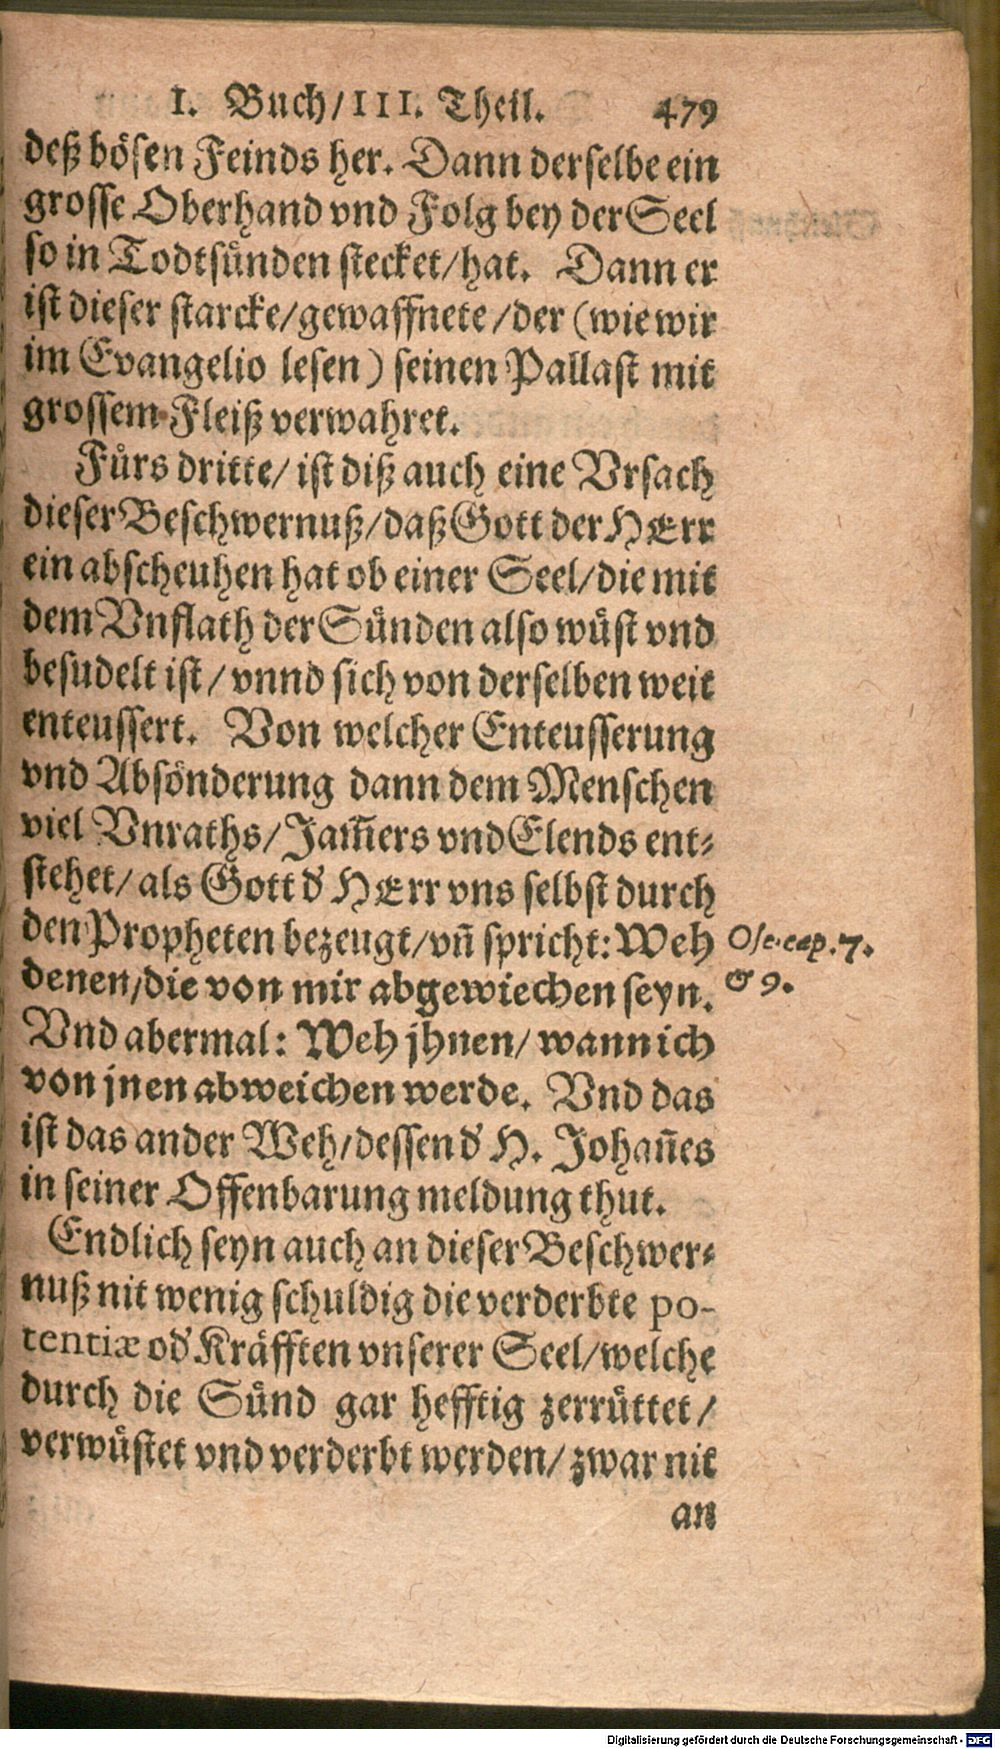 I. Buch/III. Theil. 479
deß bösen Feinds her. Dann derselbe ein
grosse Oberhand vnd Folg bey der Seel
so in Todtsünden stecket/hat. Dann er
ist dieser starcke/gewaffnete/der (wie wir
im Evangelio lesen) seinen Pallast mit
grossem Fleiß verwahret.
Fürs dritte/ ist diß auch eine Vrsach
dieser Beschwernuß/daß Gott der HErr
ein abscheuhen hat ob einer Seel/die mit
dem Vnflath der Sünden also wüst vnd
besudelt ist/ vnnd sich von derselben weit
enteussert. Von welcher Enteusserung
vnd Absönderung dann dem Menschen
viel Vnraths/Jam̃ers vnd Elends ent-
stehet/als Gott d' HErr vns selbst durch
den Propheten bezeugt/vñ spricht: Weh
denen/die von mir abgewiechen seyn.
Vnd abermal: Weh jhnen/ wann ich
von jnen abweichen werde. Vnd das
ist das ander Weh/dessen d' H. Johañes
in seiner Offenbarung meldung thut.
Endlich seyn auch an dieser Beschwer-
nuß nit wenig schuldig die verderbte po-
tentiæ od' Kräfften vnserer Seel/welche
durch die Sünd gar hefftig zerrüttet/
verwüstet vnd verderbt werden/zwar nit
an
Ose. cap. 7.
& 9.
Digitalisierung gefördert durch die Deutsche Forschungsgemeinschaft - DFG